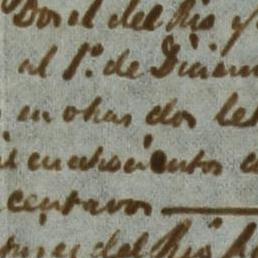 Dor el del Rio y
al 1º de Diciem
en otras dos let
cuatrocientos c
centavos
del Rio